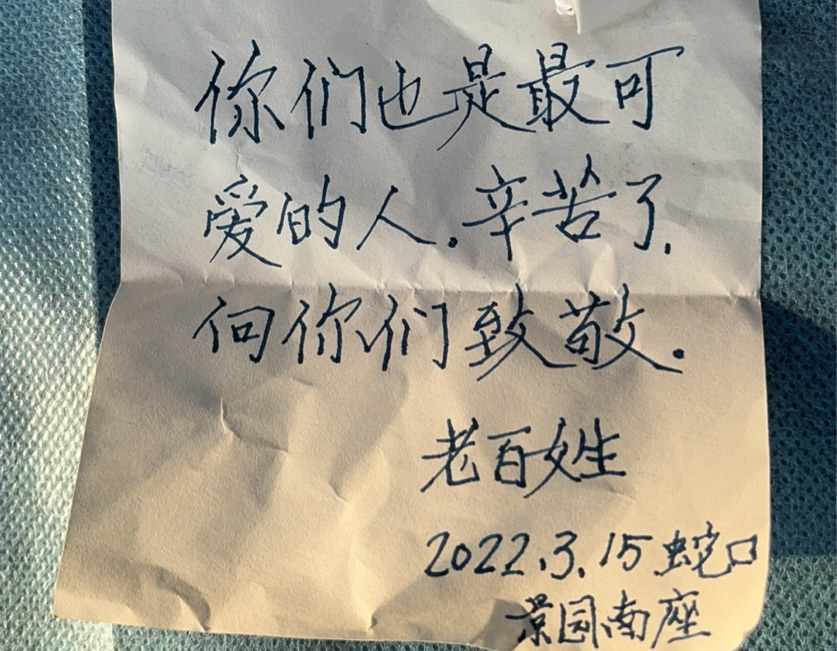 你们也是最可
爱的人.辛苦了,
向你们致敬.
老百姓
2022.3.15 蛇口
景园南座